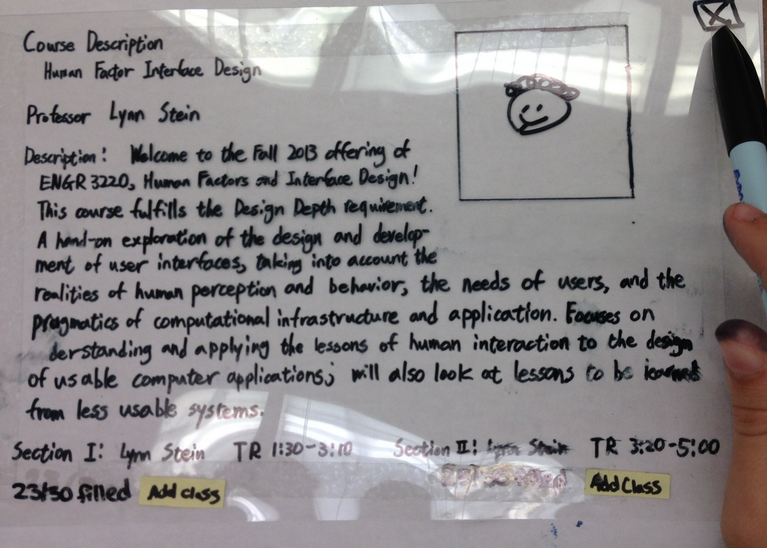 Course Description
Human Factor Interface Design
Professor Lynn Stein
Description: Welcome to the Fall 2013 offering of
ENGR 3220, Human Factors and Interface Design!
This course fulfills the Design Depth requirement.
A hand-on exploration of the design and develop-
ment of user interfaces, taking into account the
realities of human perception and behavior, the needs of users, and the
pragmatics of computational infrastructure and application. Focuses on
derstanding and applying the lessons of human interaction to the design
of usable computer applications; will also look at lessons to be learned
from less usable systems.
Section I: Lynn Stein TR 1:30-3:10 Section II: Lynn Stein TR 3:20-5:00
23/30 filled Add class Add Class